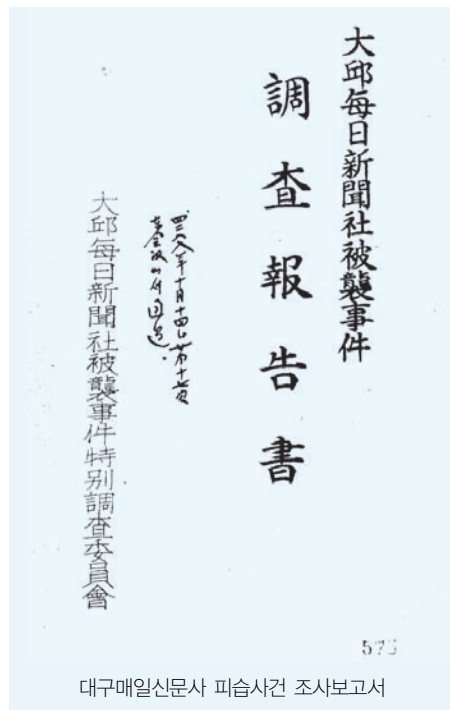 大邱每日新聞社被襲事件
調査報告書
大邱每日新聞社被襲事件特別調査委員會
대구매일신문사 피습사건 조사보고서